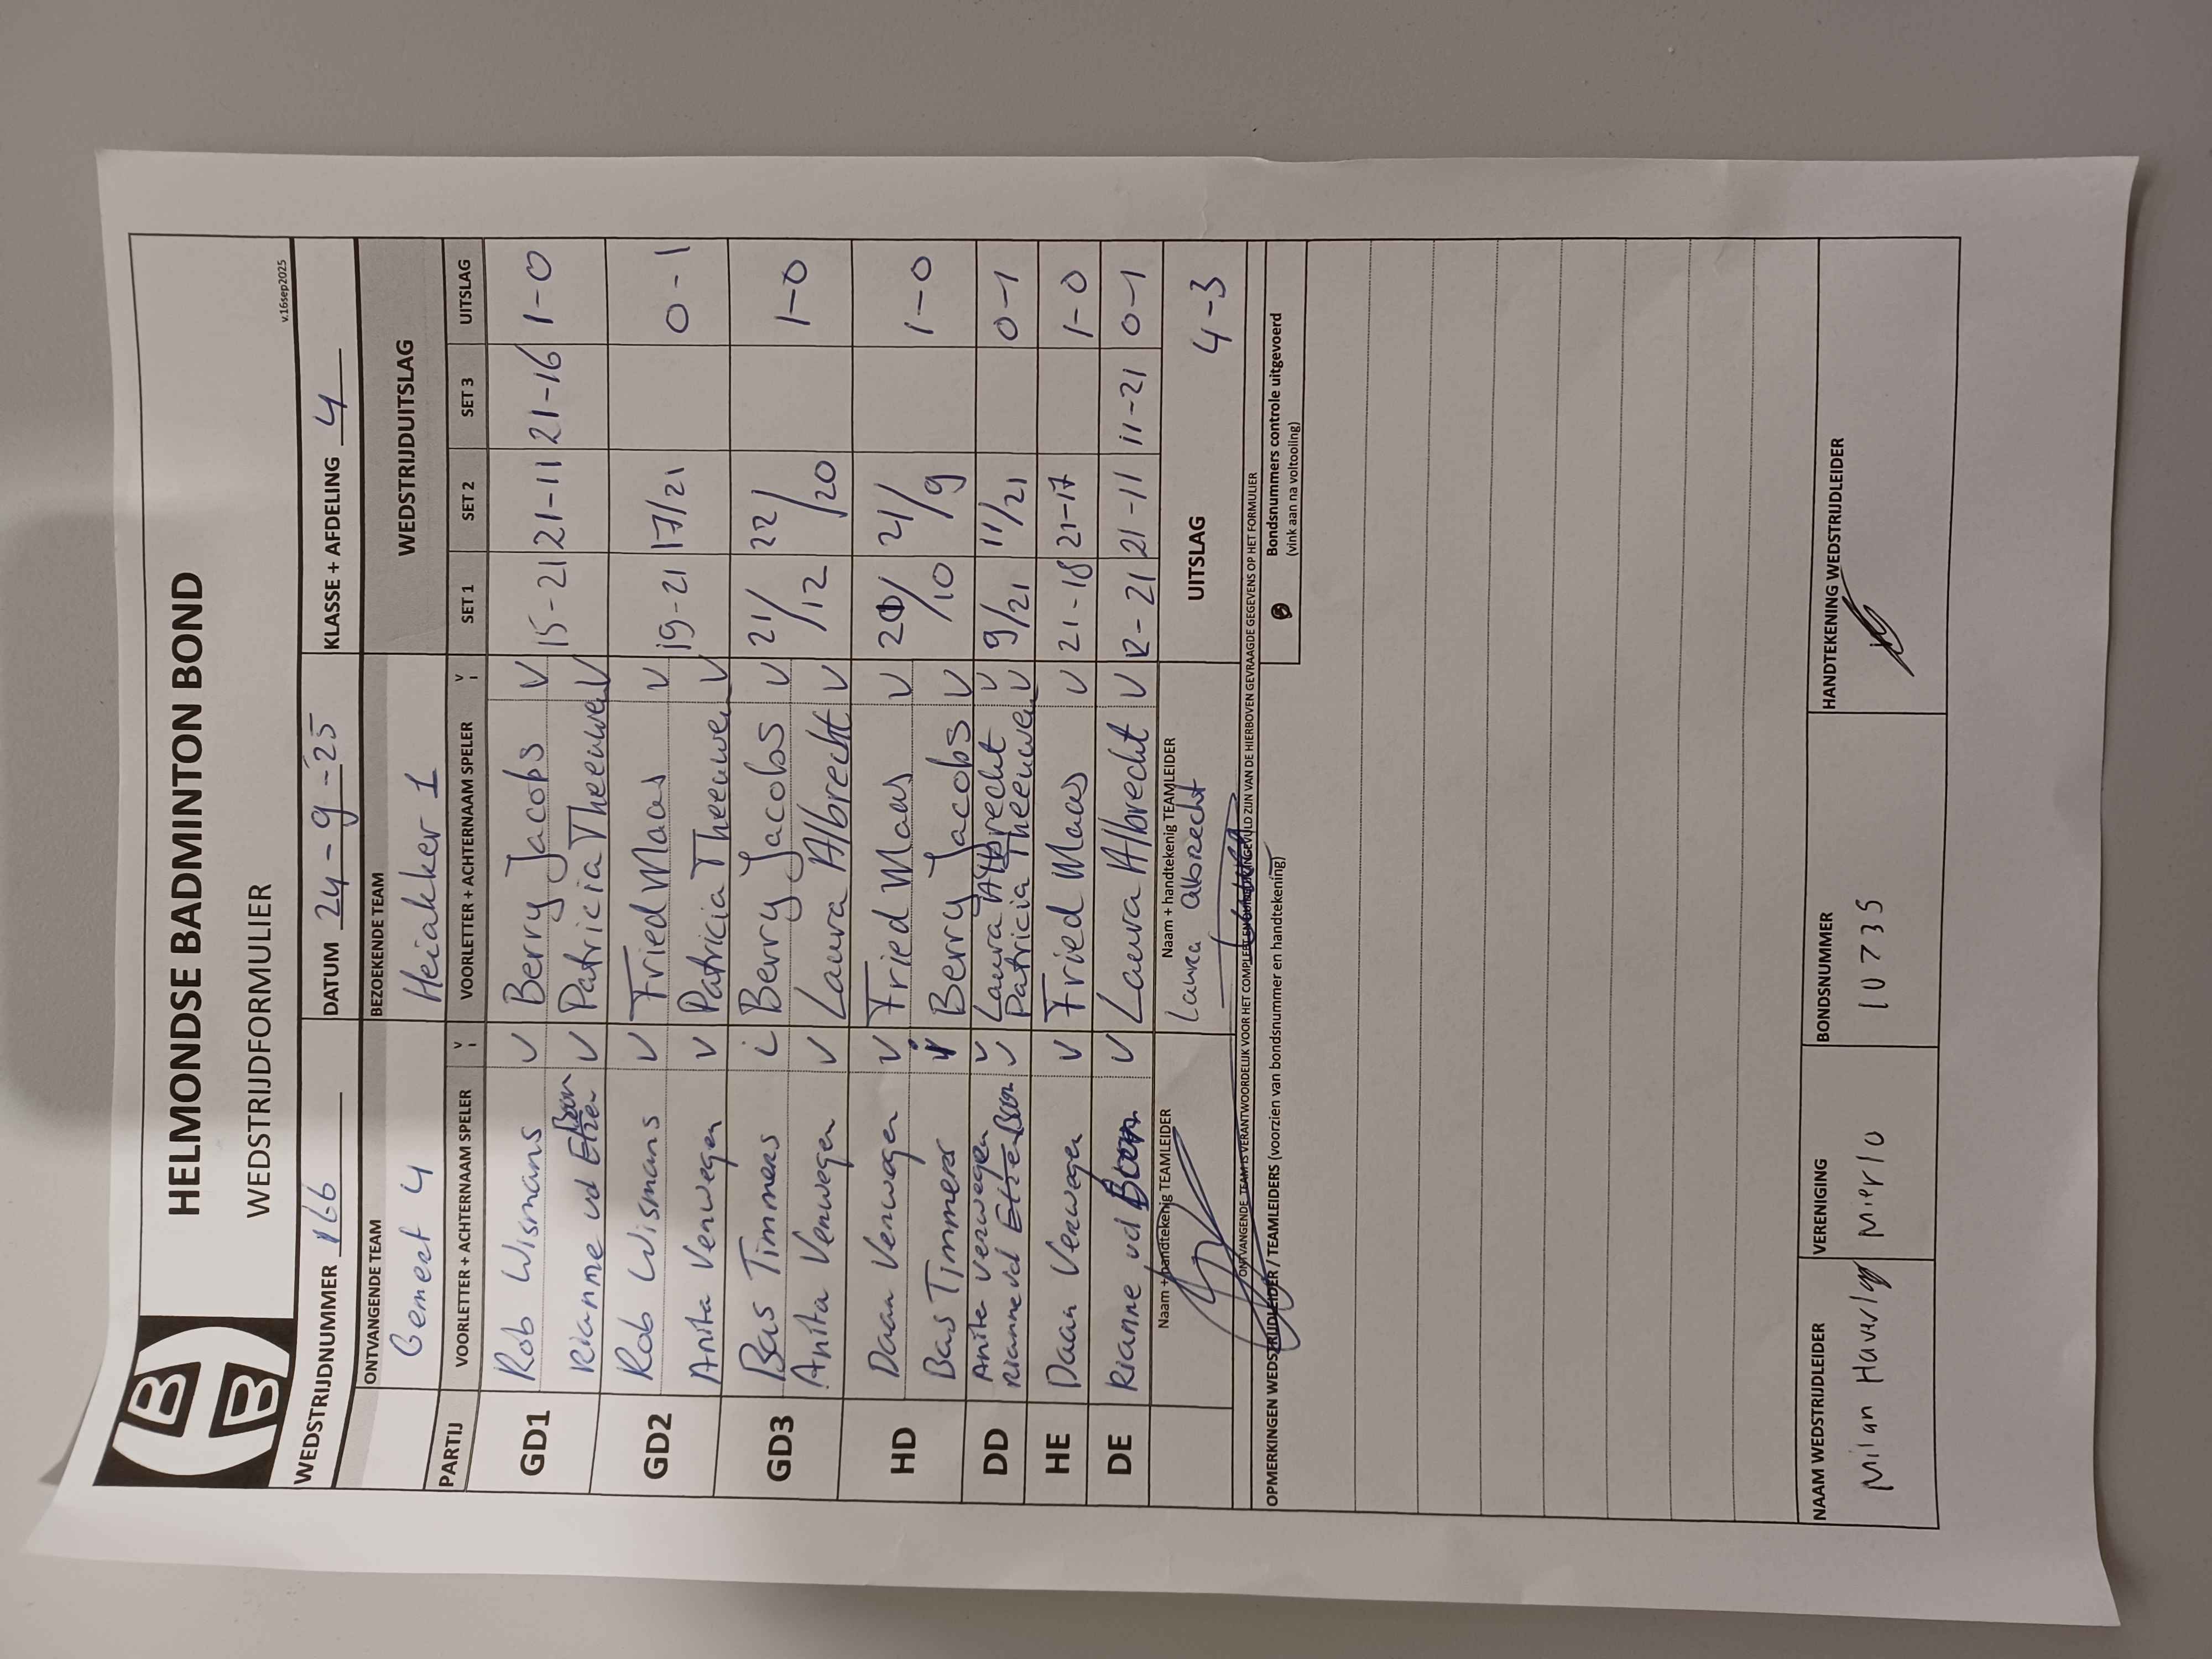 HELMONDSE BADMINTON BOND
WEDSTRIJDFORMULIER
v.16sep2025
WEDSTRIJDNUMMER 166 DATUM 24-9-25 KLASSE + AFDELING 4
ONTVANGENDE TEAM BEZOEKENDE TEAM WEDSTRIJDUITSLAG
Gemert 4 Heiakker 1
PARTIJ VOORLETTER + ACHTERNAAM SPELER V i VOORLETTER + ACHTERNAAM SPELER V i SET 1 SET 2 SET 3 UITSLAG
GD1 Rob Wismans V Berry Jacobs V 15-21 21-11 21-16 1-0
Rianne vd Boom V Patricia Theeuwen V
GD2 Rob Wismans V Fried Maas V 19-21 17/21 0-1
Anita Verwegen V Patricia Theeuwen V
GD3 Bas Timmers i Berry Jacobs V 21/12 22/20 1-0
Anita Verwegen V Laura Albrecht V
HD Daan Verwegen V Fried Maas V 21/10 21/9 1-0
Bas Timmers Berry Jacobs V
DD Anita Verwegen V Laura Albrecht V 9/21 11/21 0-1
Rianne vd Boom V Patricia Theeuwen V
HE Daan Verwegen V Fried Maas V 21-18 21-17 1-0
DE Rianne vd Boom V Laura Albrecht V 12-21 21-11 11-21 0-1
Naam + handtekenig TEAMLEIDER Naam + handtekenig TEAMLEIDER UITSLAG 4-3
Laura Albrecht
ONTVANGENDE TEAM IS VERANTWOORDELIJK VOOR HET COMPLEET EN INGEVULD ZIJN VAN DE HIERBOVEN GEVRAAGDE GEGEVENS OP HET FORMULIER
OPMERKINGEN WEDSTRIJDLEIDER / TEAMLEIDERS (voorzien van bondsnummer en handtekening)
Bondsnummers controle uitgevoerd
(vink aan na voltooiing)
NAAM WEDSTRIJDLEIDER VERENIGING BONDSNUMMER HANDTEKENING WEDSTRIJDLEIDER
Milan Mierlo 10735